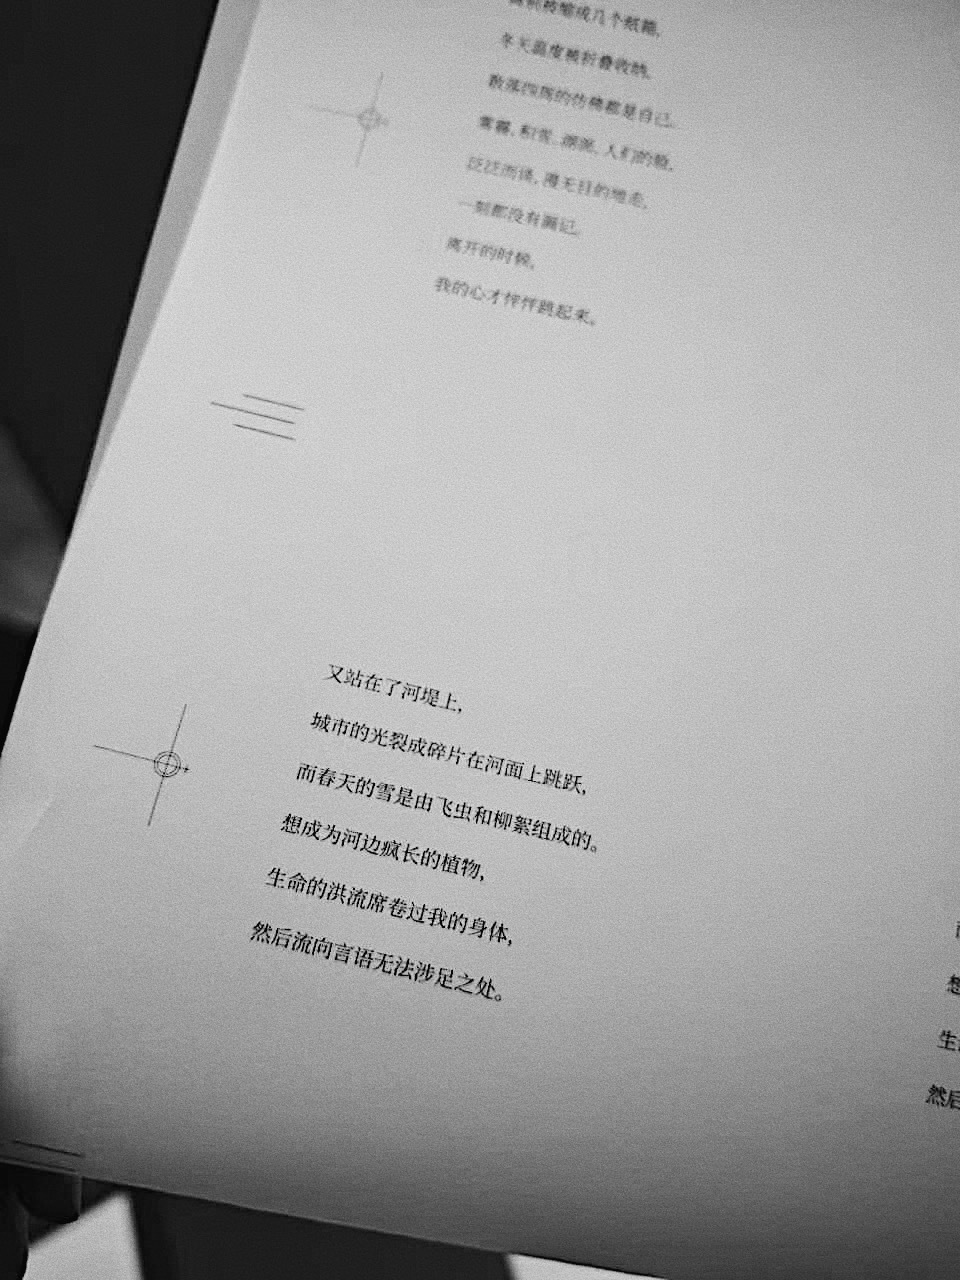 被缩成几个纸箱,
冬天温度被折叠收纳,
散落四周的仿佛都是自己。
雾霭, 积雪, 源源, 人们的脸,
泛泛而谈, 漫无目的地走,
一刻都没有漏记。
离开的时候,
我的心才怦怦跳起来。
又站在了河堤上,
城市的光裂成碎片在河面上跳跃,
而春天的雪是由飞虫和柳絮组成的。
想成为河边疯长的植物,
生命的洪流席卷过我的身体,
然后流向言语无法涉足之处。
想
生
然后